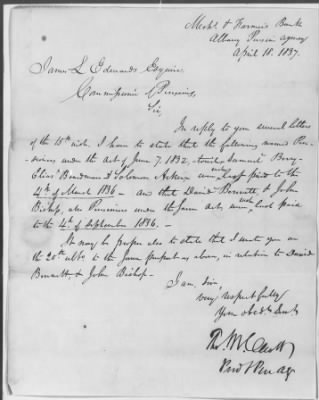 Mechs & Farmers Bank
Albany Pension agency
April 18. 1837.
James L Edwards Esquire
Commissioner of Pensions,
Sir,
In reply to your several letters
of the 15th inst. I have to state that the following named Pen-
sioners under the Act of June 7. 1832, Samuel Berry
Elias Boardman & Solomon were last paid to the
4th of March 1836 - and that David Bennett, & John
Bishop, also Pensioners under the same act were last paid
to the 4th of September 1836. -
It may be proper also to state that I wrote you on
the 20th ulto. to the same purport as above, in relation to David
Bennett, & John Bishop. -
I am, Sir,
very respectfully
Your obedt. Servt.
Tho. W. Olcott